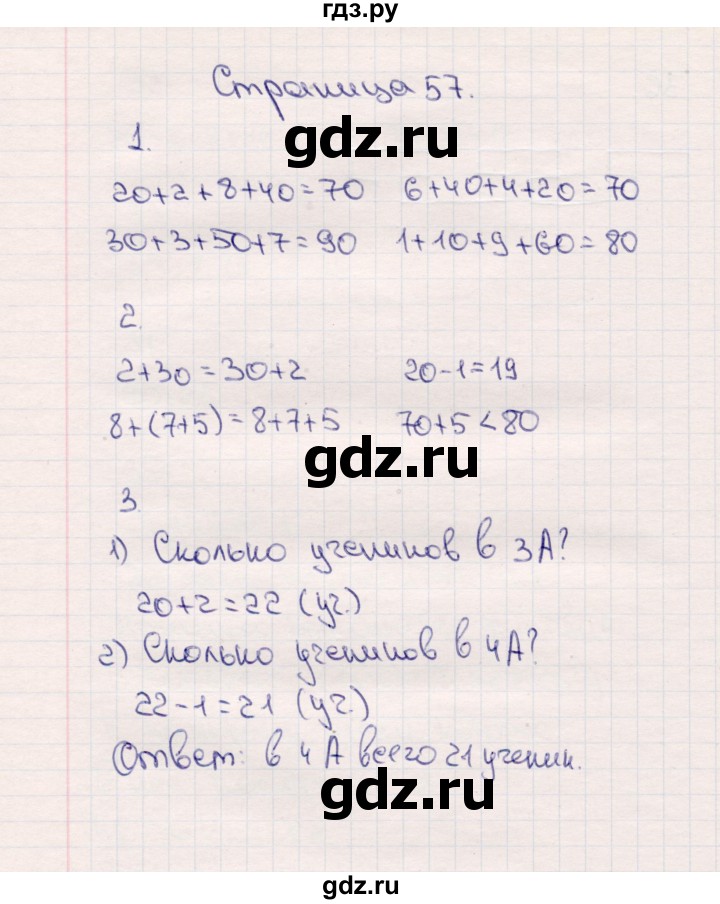 гдз.ру
Страница 57.
gdz.ru
1.
20+2+8+40=70 6+40+4+20=70
30+3+50+7=90 1+10+9+60=80
2.
2+30=30+2 20-1=19
8+(7+5)=8+7+5 70+5<80
gdz.ru
3.
1) Сколько учеников в 3А?
20+2=22 (уч.)
2) Сколько учеников в 4А?
22-1=21 (уч.)
Ответ: в 4А всего 21 ученик.
gdz.ru
gdz.ru